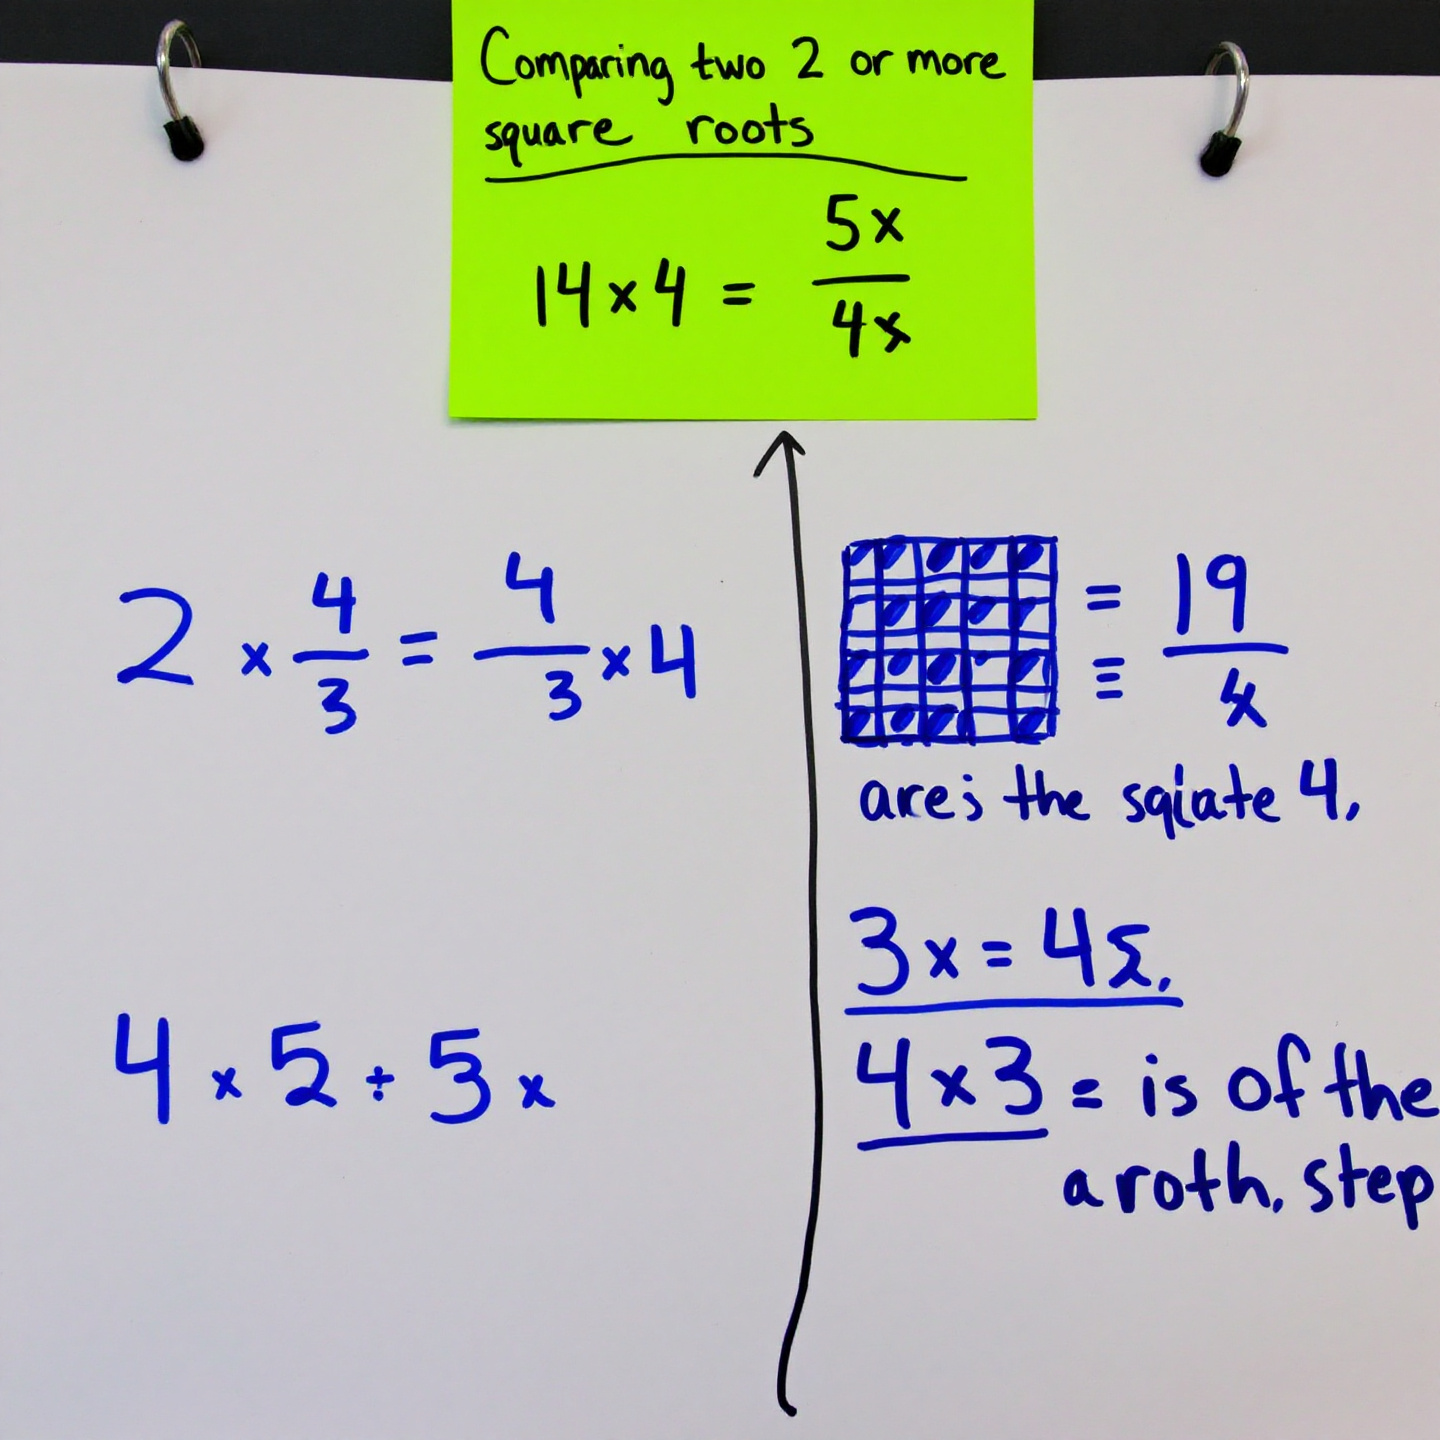 Comparing two 2 or more
square roots
14 x 4 = 5x / 4x
2 x 4/3 = 4/3 x 4
4 x 5 ÷ 5 x
= 19
≡ 4
are; the sqiate 4,
3 x = 4Σ.
4 x 3 = is of the
a roth. step